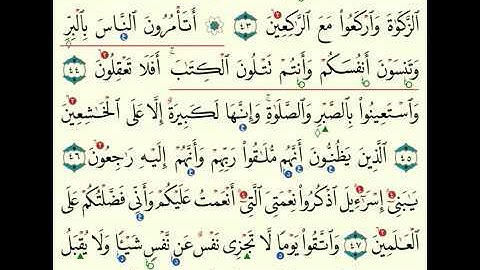 الزَّكَوٰةَ وَٱرْكَعُوا۟ مَعَ ٱلرَّٰكِعِينَ ٤٣ ۞ أَتَأْمُرُونَ ٱلنَّاسَ بِٱلْبِرِّ
وَتَنسَوْنَ أَنفُسَكُمْ وَأَنتُمْ تَتْلُونَ ٱلْكِتَٰبَ ۚ أَفَلَا تَعْقِلُونَ ٤٤
وَٱسْتَعِينُوا۟ بِٱلصَّبْرِ وَٱلصَّلَوٰةِ ۚ وَإِنَّهَا لَكَبِيرَةٌ إِلَّا عَلَى ٱلْخَٰشِعِينَ
٤٥ ٱلَّذِينَ يَظُنُّونَ أَنَّهُم مُّلَٰقُوا۟ رَبِّهِمْ وَأَنَّهُمْ إِلَيْهِ رَٰجِعُونَ ٤٦
يَٰبَنِىٓ إِسْرَٰٓءِيلَ ٱذْكُرُوا۟ نِعْمَتِىَ ٱلَّتِىٓ أَنْعَمْتُ عَلَيْكُمْ وَأَنِّى فَضَّلْتُكُمْ عَلَى
ٱلْعَٰلَمِينَ ٤٧ وَٱتَّقُوا۟ يَوْمًا لَّا تَجْزِى نَفْسٌ عَن نَّفْسٍ شَيْـًٔا وَلَا يُقْبَلُ